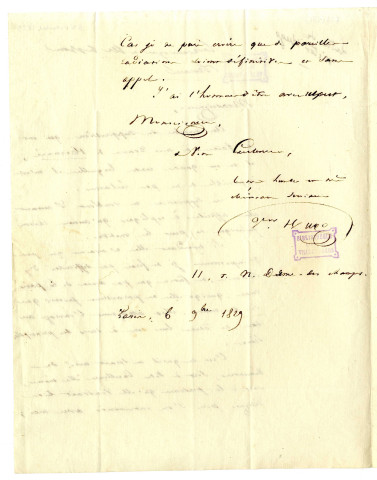 Cas je ne puis croire que de pareilles
radiations soient définitives et sans
appel.
J'ai l'honneur d'être avec respect,
Monsieur,
de Votre Excellence,
Le très humble et très
obéissant serviteur
Hugo
11, r. N. Dame-des-champs.
Paris, 6 9bre 1829